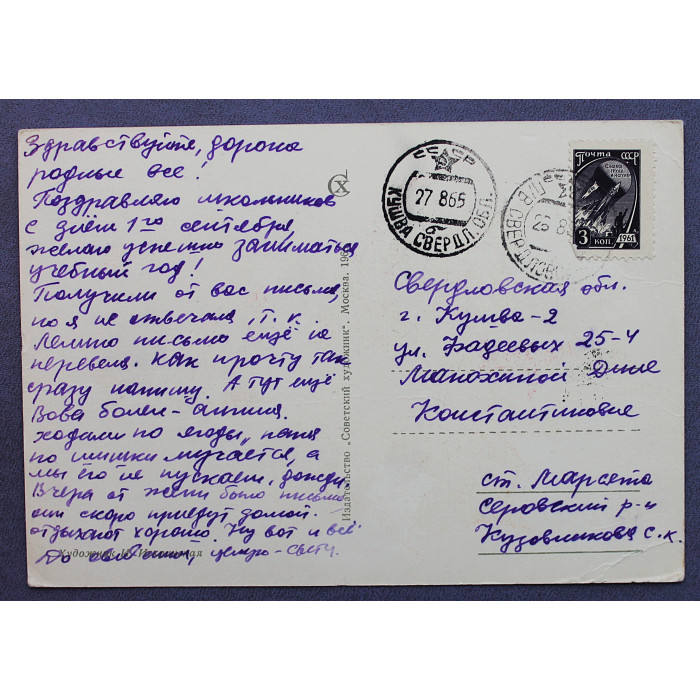 Здравствуйте, дорогие
родные все!
Поздравляю школьников
с днём 1го сентября,
желаю успешно заниматься
учебный год!
Получили от вас письма,
но я не отвечала, т. к.
письмо ещё не
перевела. Как прочту так
сразу напишу. А тут ещё
Вова болел - ангина.
ходили по ягоды, папа
по шишки мучается, а
мы его не пускаем, дожди.
Вчера от Жени было письмо
они скоро приедут домой.
отдыхают хорошо. Ну вот и всё
До свиданья,
Художник
Издательство „Советский художник". Москва. 196
СССР
27 8 65
КУШВА СВЕРДЛ. ОБЛ.
б
ПОЧТА СССР
3 КОП.
1961
Свердловская обл.
г. Кушва-2
ул. Фадеевых 25-4
Манохиной Дине
Константиновне
ст. Марсета
Серовский р-н
Кузовникова С. К.